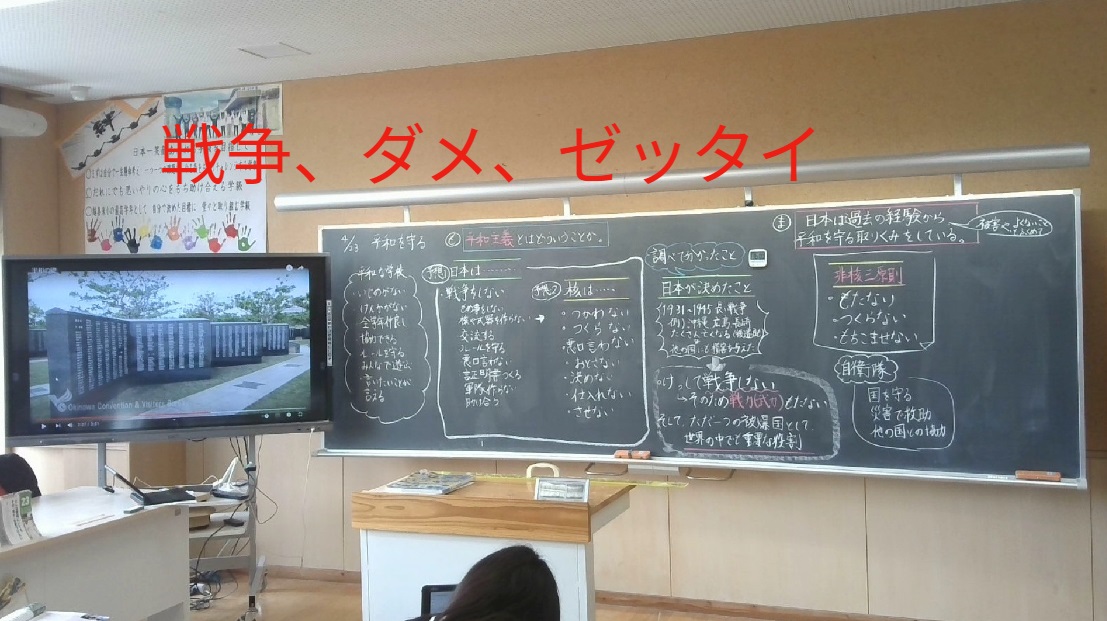 戦争、ダメ、ゼッタイ
日本一
だれにでも思いやりの心をもち助け合える学級
Okinawa Convention & Visitors
4/23 平和を守る
平和主義とはどういうことか。
平和な学校
・いじめがない
けんかがない
全学年仲良し
協力できる
ルールを守る
みんなで遊ぶ
言いたいことが
言える
予想1 日本は……
・戦争をしない
交流する
ルールを守る
悪口言わない
軍隊作らない
助け合う
予想2 核は……
・つかわない
・つくらない
・悪口言わない
・おとさない
・決めない
・仕入れない
・させない
調べて分かったこと
日本が決めたこと
1931〜1945 長い戦争
例)沖縄 広島 長崎
・けっして戦争しない
→そのため戦力(武力)もたない
そして、ただ一つの被爆国として
世界の中でも重要な役割
ま 日本は過去の経験から
平和を守る取りくみをしている。
非核三原則
・もたない
・つくらない
・もちこませない
自衛隊
国を守る
災害で救助
他の国との協力